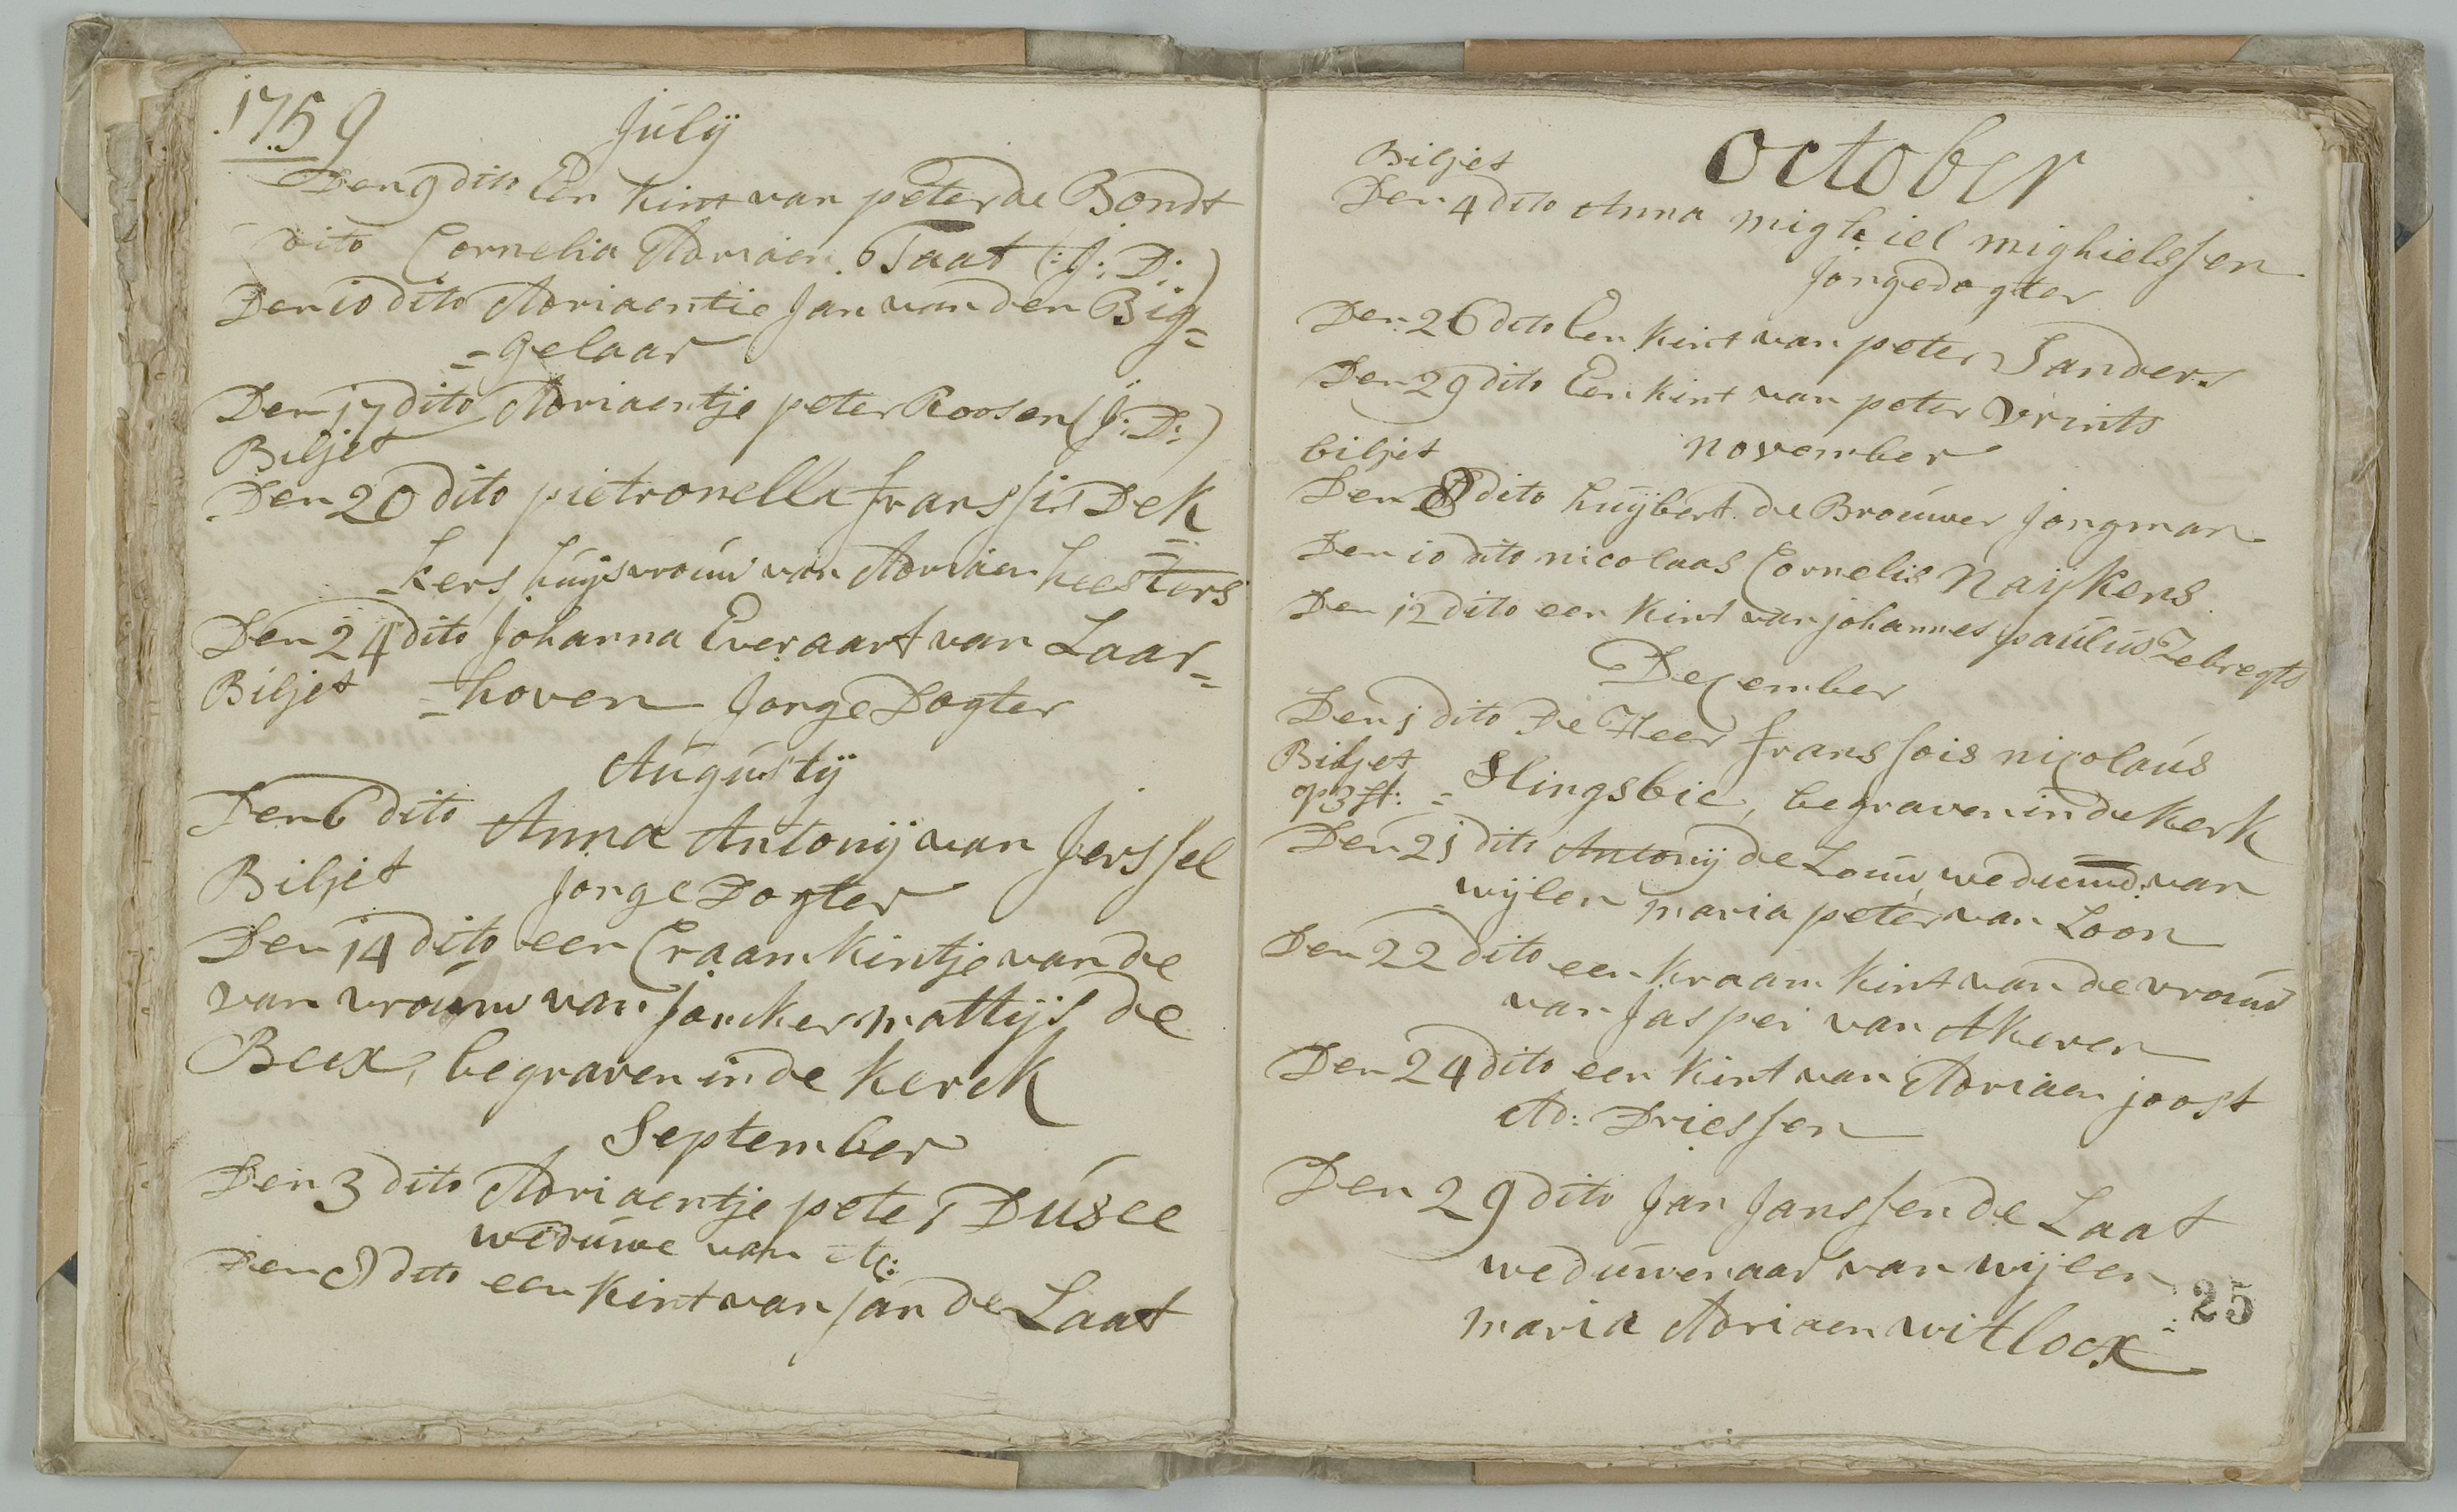 1759
Julÿ
Den 9 dito Een kint van peter de Bondt
dito Cornelia Adriaen Taat (:J: D:)
Den 10 dito Adriaentie Jan van den Big=
=gelaar
Den 17 dito Adriaentje peter Roosen (J: D:)
Biljet
Den 20 dito pietronella fransis Dek=
=kers, huijsvrouw van Adriaen heestors
Den 24 dito Johanna Everaart van Laar=
Biljet =hoven Jonge Dogter
Augustÿ
Den 6 dito Anna Antonij van Jerssel
Biljet jonge Dogter
Den 14 dito een Craam kintje van de
van vrouw van Joncker mattijs de
Beex, begraven in de Kerck
September
Den 3 dito Adriaentje peter Dusee
weduwe van etc:
Den 8 dito een kint van Jan de Laat
october
Biljet
Den 4 dito Anna mighiel mighielssen
jongedogter
Den 26 dito Een kint van peter Sanders
Den 29 dito Een kint van peter vrints
november
biljet
Den 8 dito huijbert de Brouwer jongman
Den 10 dito nicolaas Cornelis Naijkens
Den 12 dito een kint van johannes paulus Zebregts
December
Den 1 dito De Heer franssois nicolaus
Biljet
op 3 ft: =Slingsbie, begraven in de Kerk
Den 21 dito Antonij de Louw, wedumd. van
wijlen maria peter van Loon
Den 22 dito een kraam kint van de vrouw
van Jasper van Akeren
Den 24 dito een kint van Adriaen joost
Ad: Driessen
Den 29 dito Jan Janssen de Laat
weduwenaar van wijlen
maria Adriaen witlocx
25